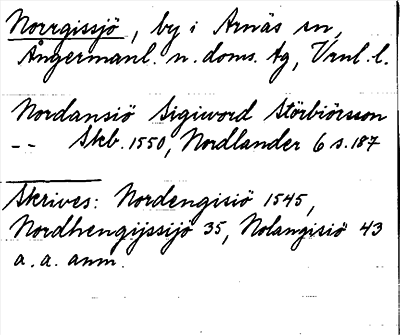 Norrgissjö, by i Arnäs sn,
Ångermanl. n. doms. tg, Vrnl. l.
Nordansiö Sigiword Störbiörsson
-- Skb. 1550, Nordlander 6 s. 187
Skrives: Nordengisiö 1545,
Nordhengijssijö 35, Nolangisiö 43
a. a. anm.